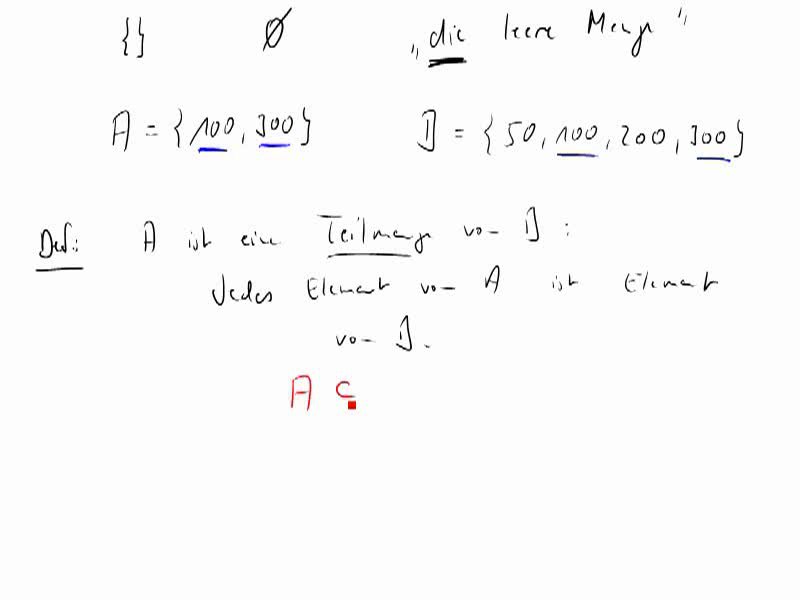 {} ∅ „die leere Menge"
A = {100, 300} B = {50, 100, 200, 300}
Def.: A ist eine Teilmenge von B :
Jedes Element von A ist Element
von B.
A ⊂